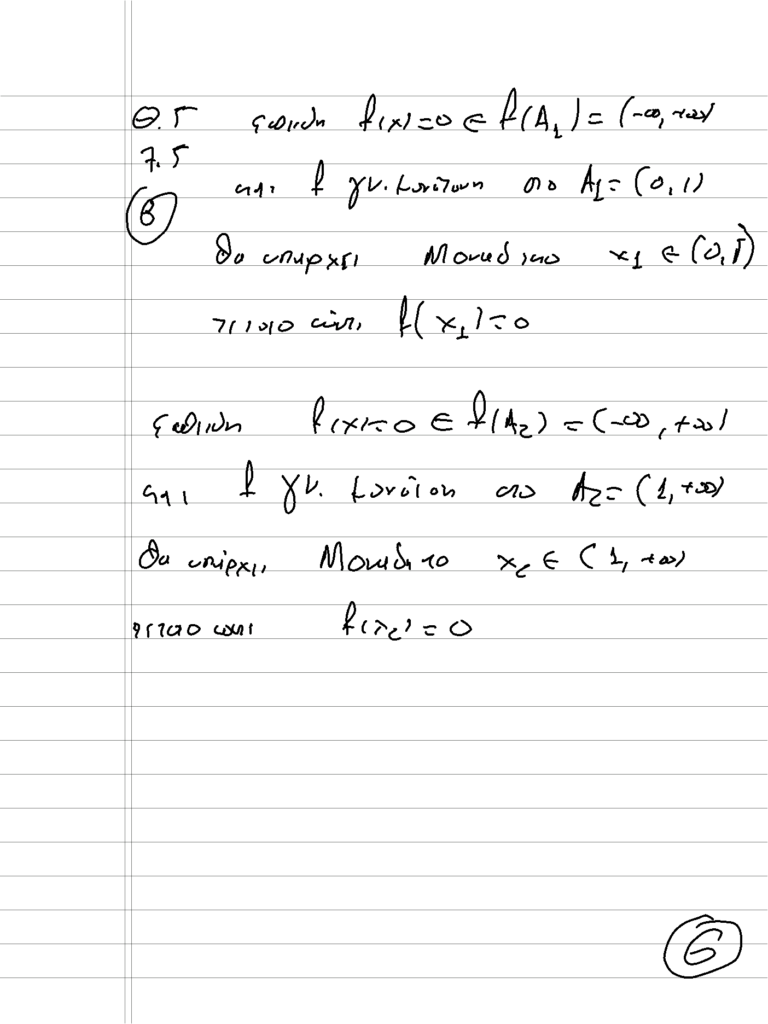 Θ.5 επειδη f(x)=0 ∈ f(A₁) = (-∞, +∞)
7.5
και f γν. μονοτονη στο A₁ = (0,1)
β
θα υπαρχει Μοναδικο x₁ ∈ (0,1)
τετοιο ωστε f(x₁)=0
επειδη f(x)=0 ∈ f(A₂) = (-∞, +∞)
και f γν. μονοτονη στο A₂ = (1, +∞)
θα υπαρχει Μοναδικο x₂ ∈ (1, +∞)
τετοιο ωστε f(x₂) = 0
6